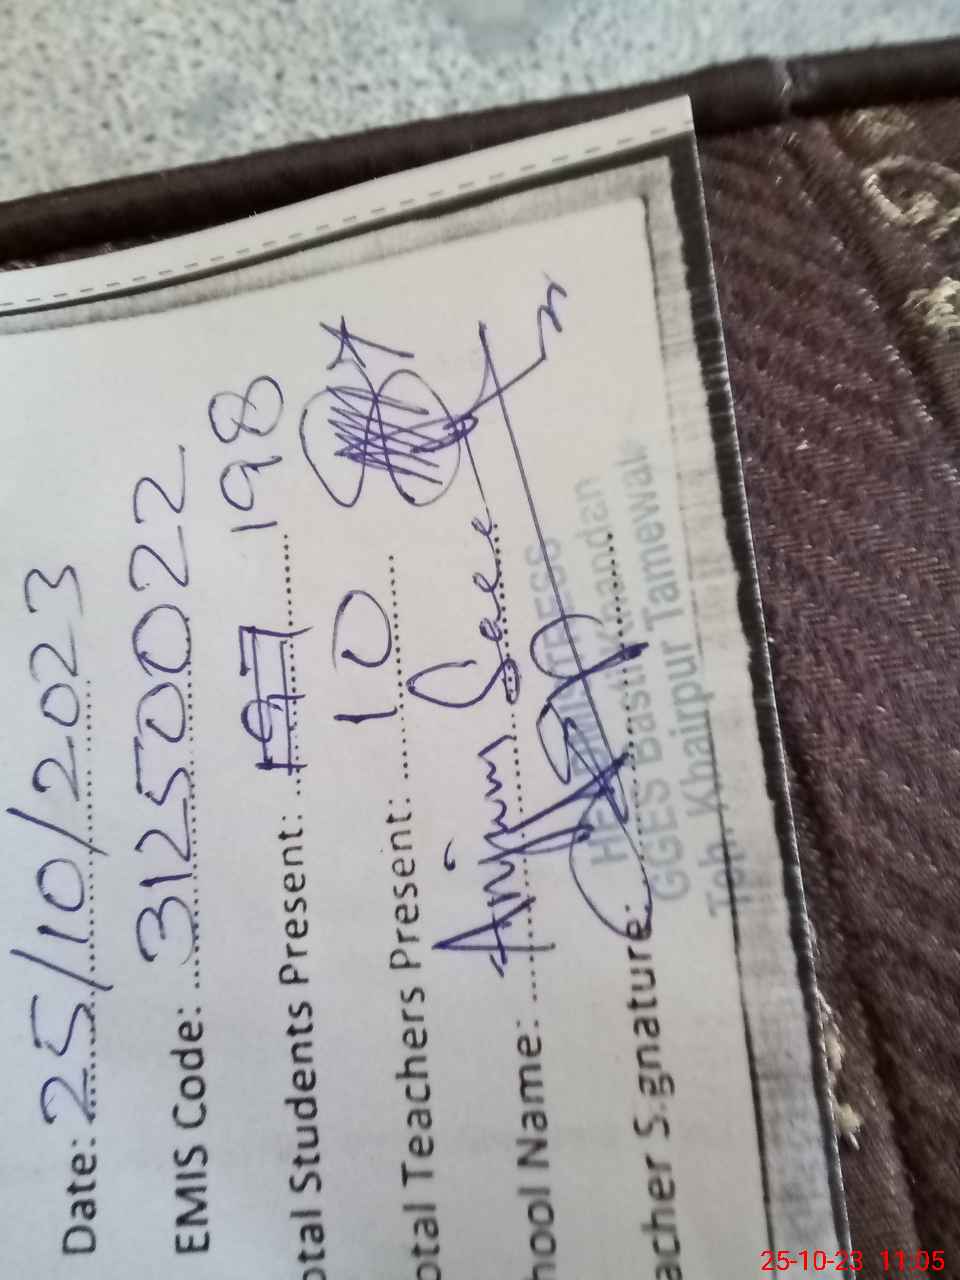 Date: 25/10/2023
EMIS Code: 31250022
otal Students Present: 198
otal Teachers Present: 10
hool Name: Anjum
acher S.gnature:
HEADMISTRESS
GGES Basti Khandan
Teh. Khairpur Tamewali
25-10-23 11:05